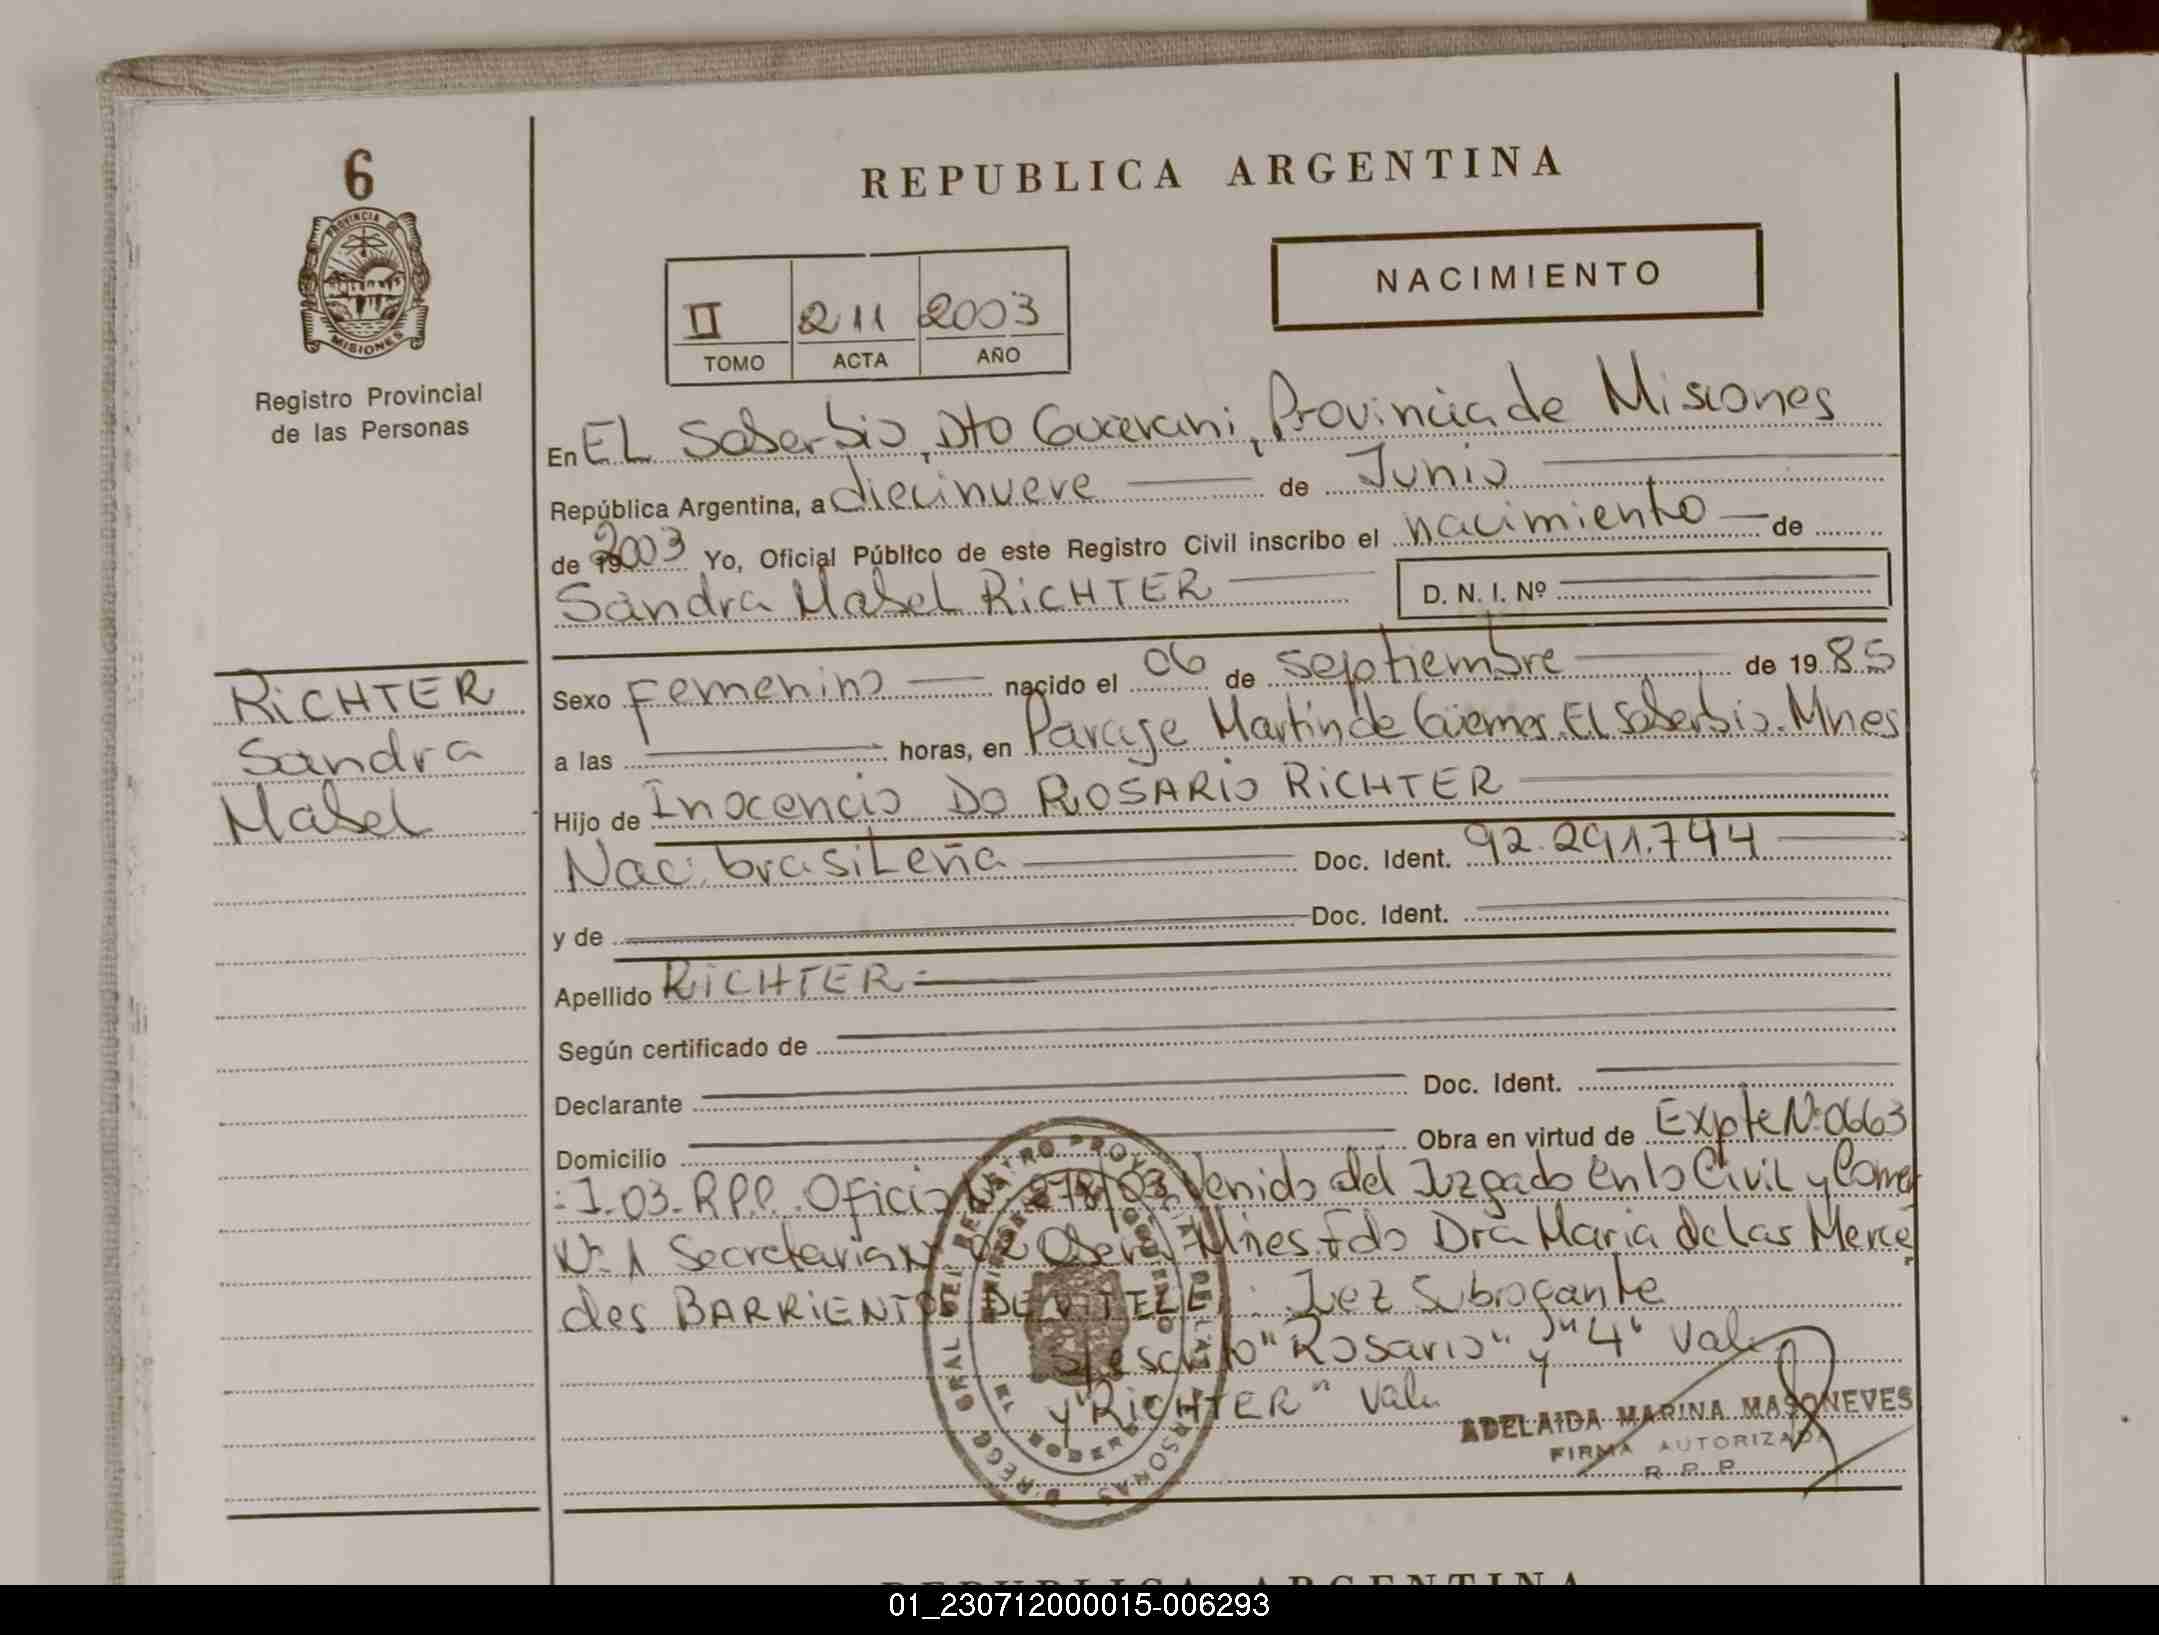 6
PROVINCIA DE
MISIONES
Registro Provincial
de las Personas
REPUBLICA ARGENTINA
NACIMIENTO
II 211 2003
TOMO ACTA AÑO
En EL Soberbio, Dto Guarani, Provincia de Misiones
República Argentina, a diecinueve de Junio
de 2003 Yo, Oficial Público de este Registro Civil inscribo el nacimiento de
Sandra Mabel RiCHTER D. N. I. Nº
RiCHTER
Sandra
Mabel
Sexo Femenino nacido el 06 de septiembre de 1985
a las horas, en Paraje Martin de Güemes. EL Soberbio. Mnes
Hijo de Inocencio Do ROSARio RiCHTER
Nac: brasiLeña Doc. Ident. 92.291.744
y de Doc. Ident.
Apellido RiCHTER=
Según certificado de
Declarante Doc. Ident.
Domicilio Obra en virtud de Expte Nº 0663
I-03-R.P.P. Oficio Nº 278/03 Venido del Juzgado en lo Civil y Comer
Nº 1 Secretaria Nº 02 Oberá-Mnes Fdo Dra Maria de las Merce
des BARRiENTOS DE : Juez Subrogante
"Rosario" y "4" Vale
y "RiCHTER" Vale
ADELAIDA MARINA MASONEVES
FIRMA AUTORIZADA
R. P. P.
REPUBLICA ARGENTINA
01_230712000015-006293